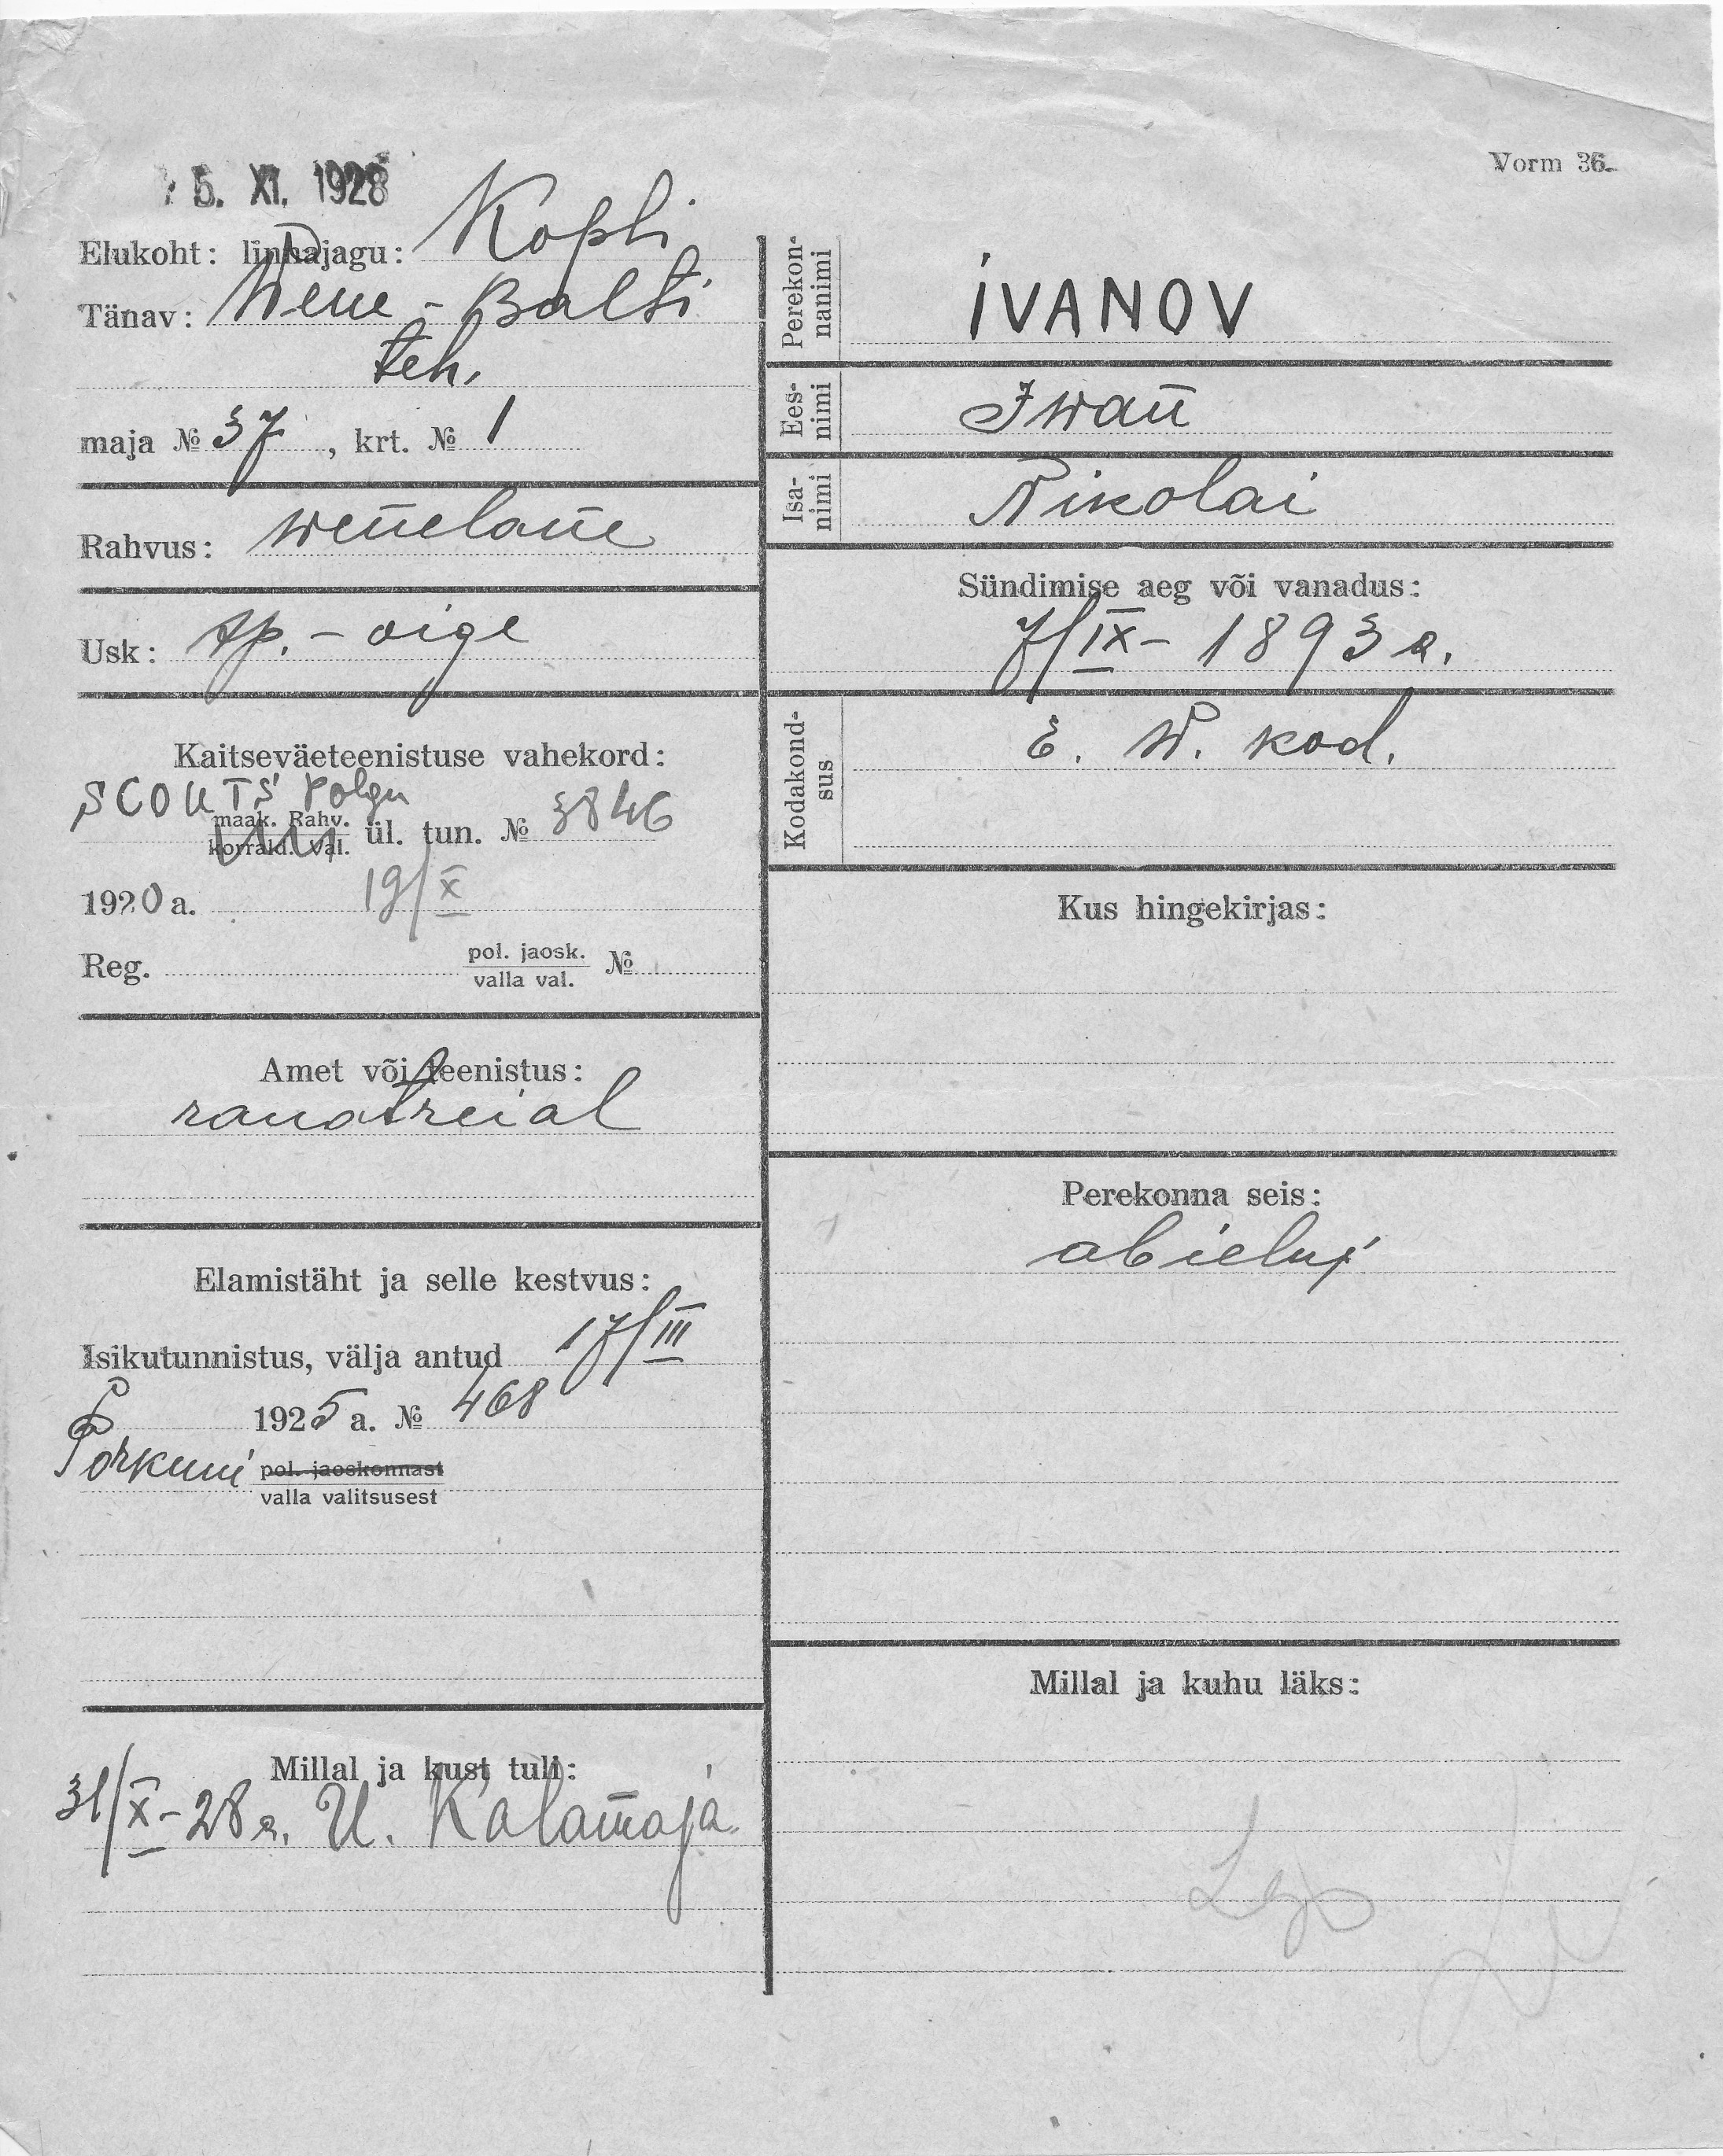 5. XI. 1928
Vorm 36.
Elukoht: linnajagu: Kopli
Tänav: Wene-Balti
teh.
maja № 37, krt. № 1
Rahvus: wenelane
Usk: ap.-oige
Kaitseväeteenistuse vahekord:
SCOUTS Polgu
maak. Rahv.
korrald. Val. ül. tun. № 3846
1920 a. 19/X
Reg. pol. jaosk. №
valla val.
Amet või teenistus:
rauatreial
Elamistäht ja selle kestvus:
Isikutunnistus, välja antud 17/III
1925 a. № 468
Porkuni pol. jaoskonnast
valla valitsusest
Millal ja kust tuli:
31/X-28 a. U. Kalamaja.
Perekon-
nanimi IVANOV
Ees-
nimi Iwan
Isa-
nimi Nikolai
Sündimise aeg või vanadus:
7/IX-1893 a.
Kodakond-
sus E. W. kod.
Kus hingekirjas:
Perekonna seis:
abielus
Millal ja kuhu läks: